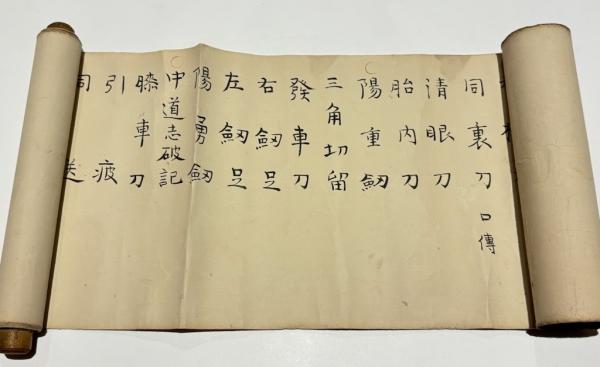 同裏刀 口傳
請眼刀
胎内刀
陽重劔
三角切留
發車刀
右劔足
左劔足
陽勇劔
中道志破記
膝車刀
引疲
同送